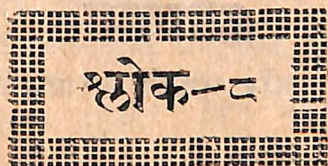 श्लोक-८